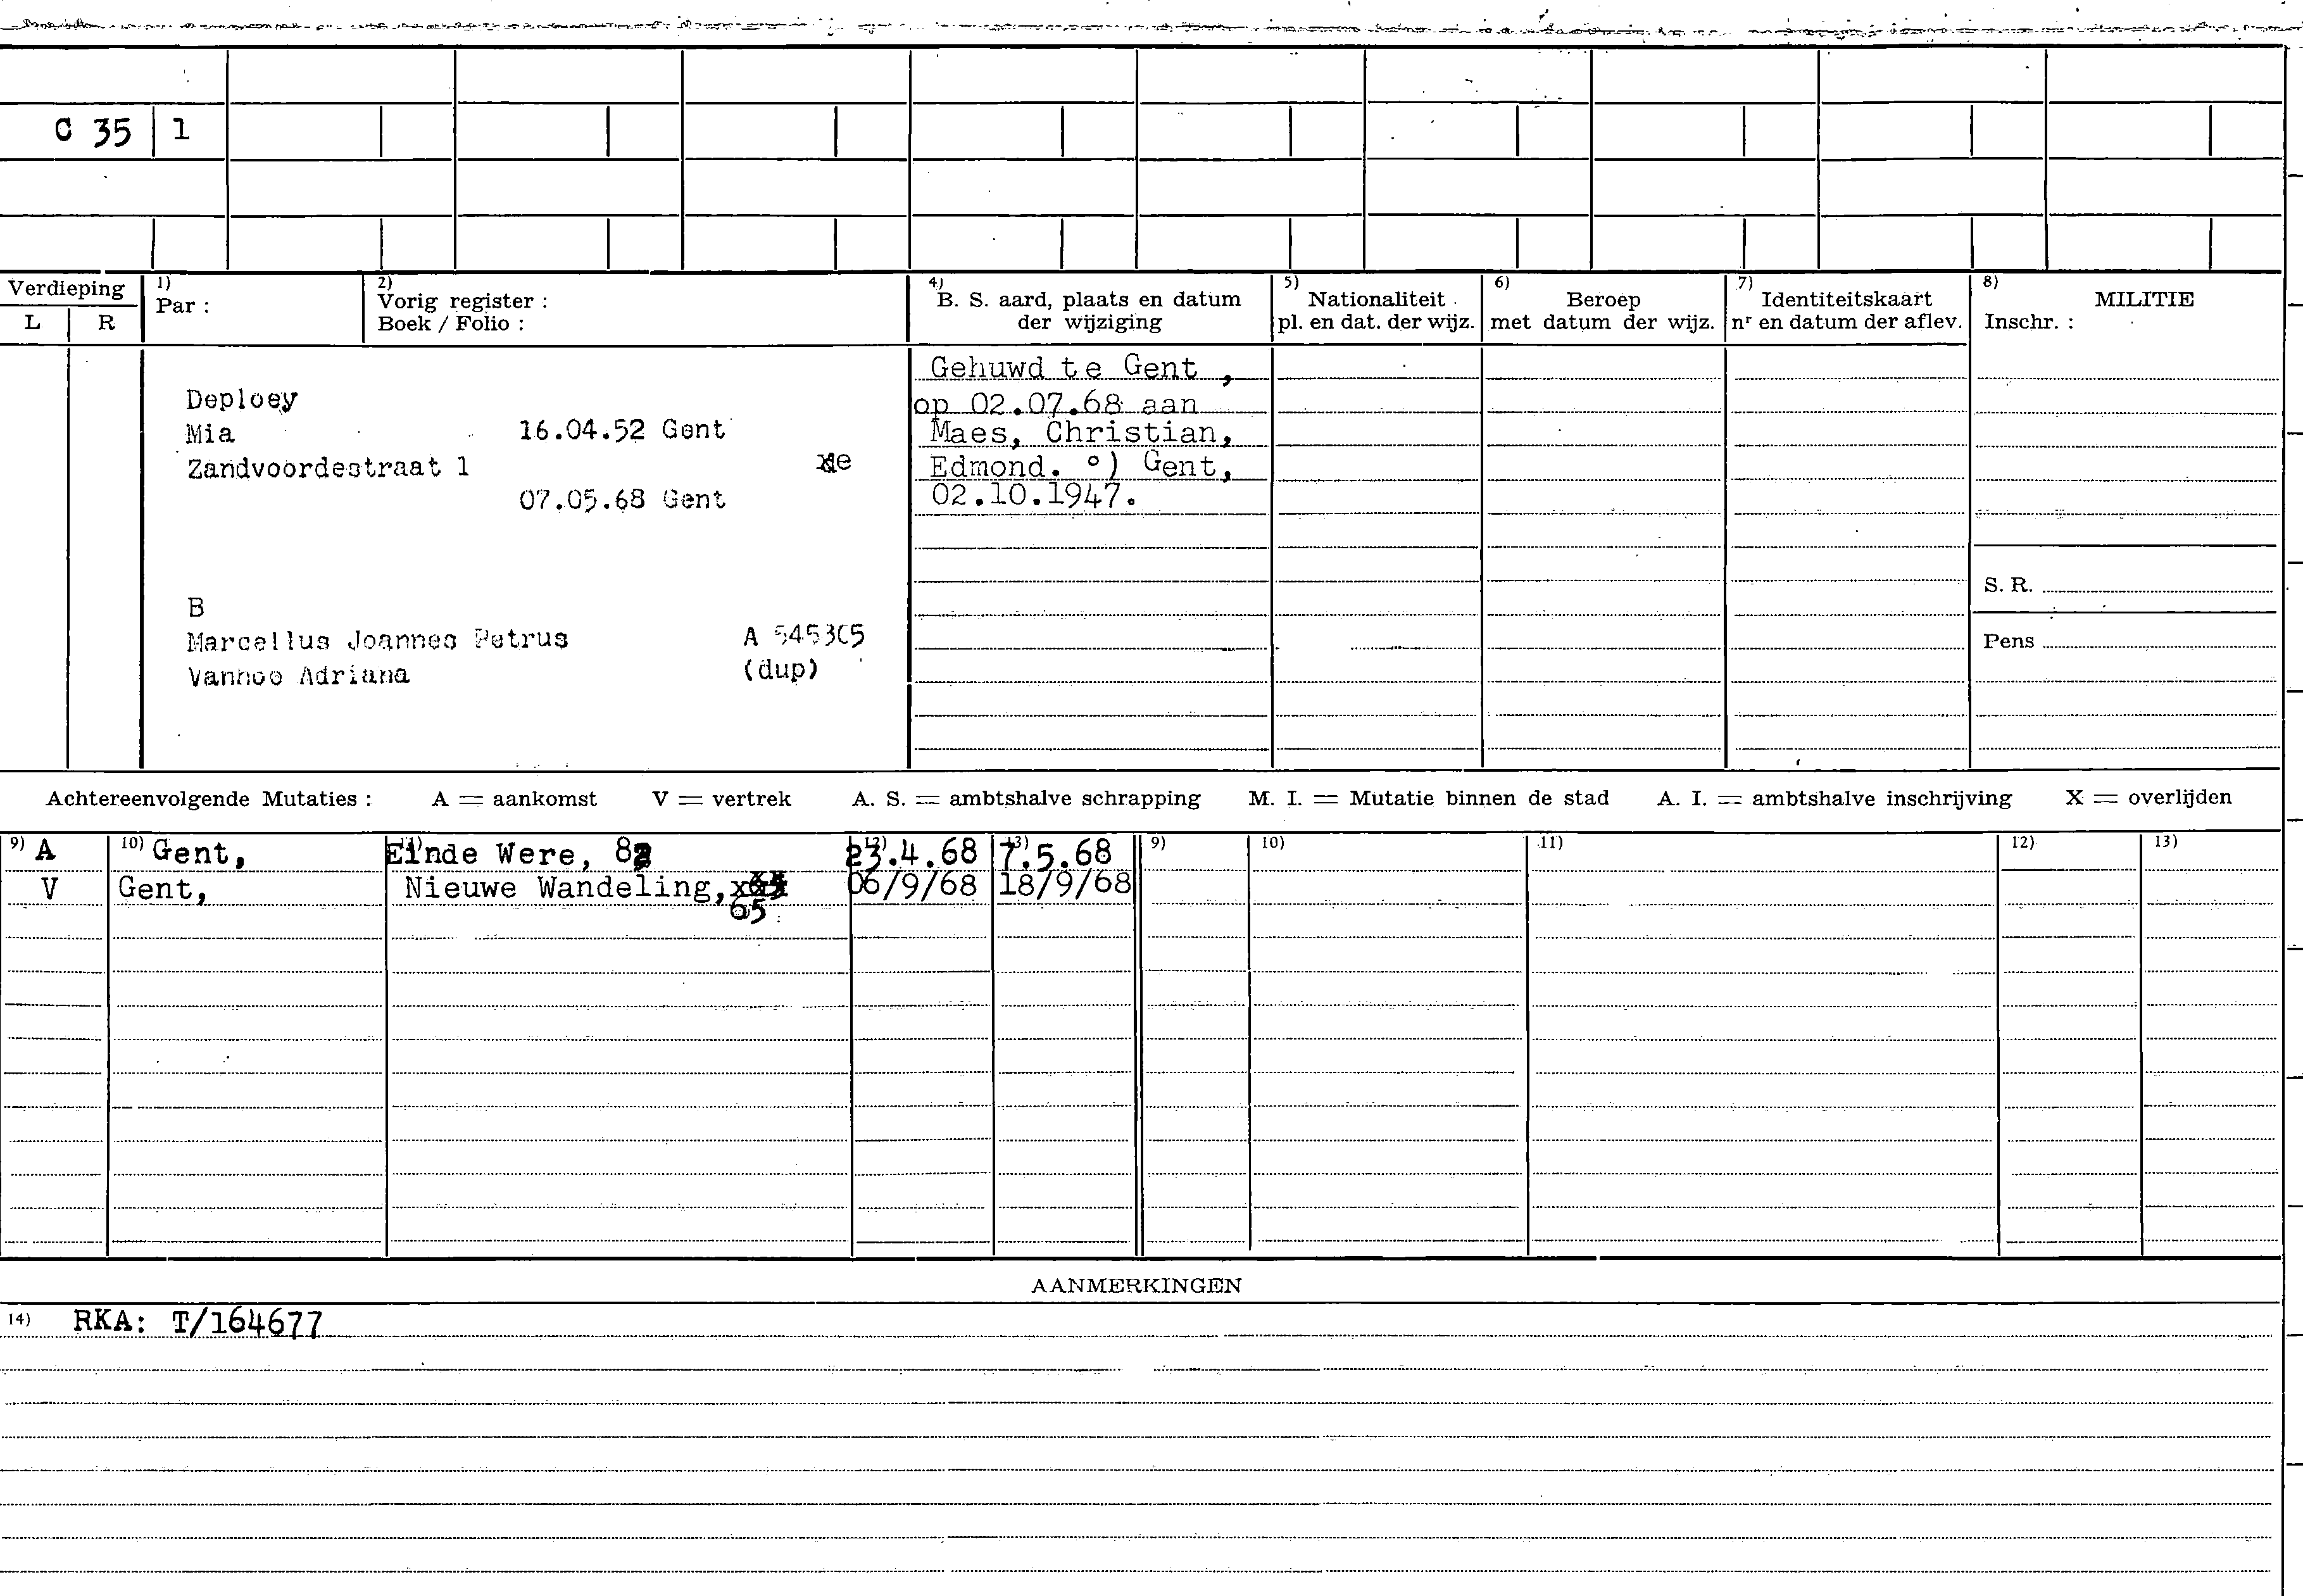 C 35 1
Verdieping
L R
1) Par :
2) Vorig register :
Boek / Folio :
4) B. S. aard, plaats en datum
der wijziging
5) Nationaliteit
pl. en dat. der wijz.
6) Beroep
met datum der wijz.
7) Identiteitskaart
nr en datum der aflev.
8) MILITIE
Inschr. :
Deploey
Mia 16.04.52 Gent
Zandvoordestraat 1
07.05.68 Gent
B
Marcellus Joannes Petrus
Vanhoe Adriana (dup)
Gehuwd te Gent ,
op 02.07.68 aan
Maes, Christian,
Edmond. °) Gent,
02.10.1947.
S. R.
Pens
Achtereenvolgende Mutaties : A = aankomst V = vertrek A. S. = ambtshalve schrapping M. I. = Mutatie binnen de stad A. I. = ambtshalve inschrijving X = overlijden
9) A 10) Gent, Einde Were, 23.4.68 7.5.68 9) 10) 11) 12) 13)
V Gent, Nieuwe Wandeling, 06/9/68 18/9/68
65
AANMERKINGEN
14) RKA: T/164677